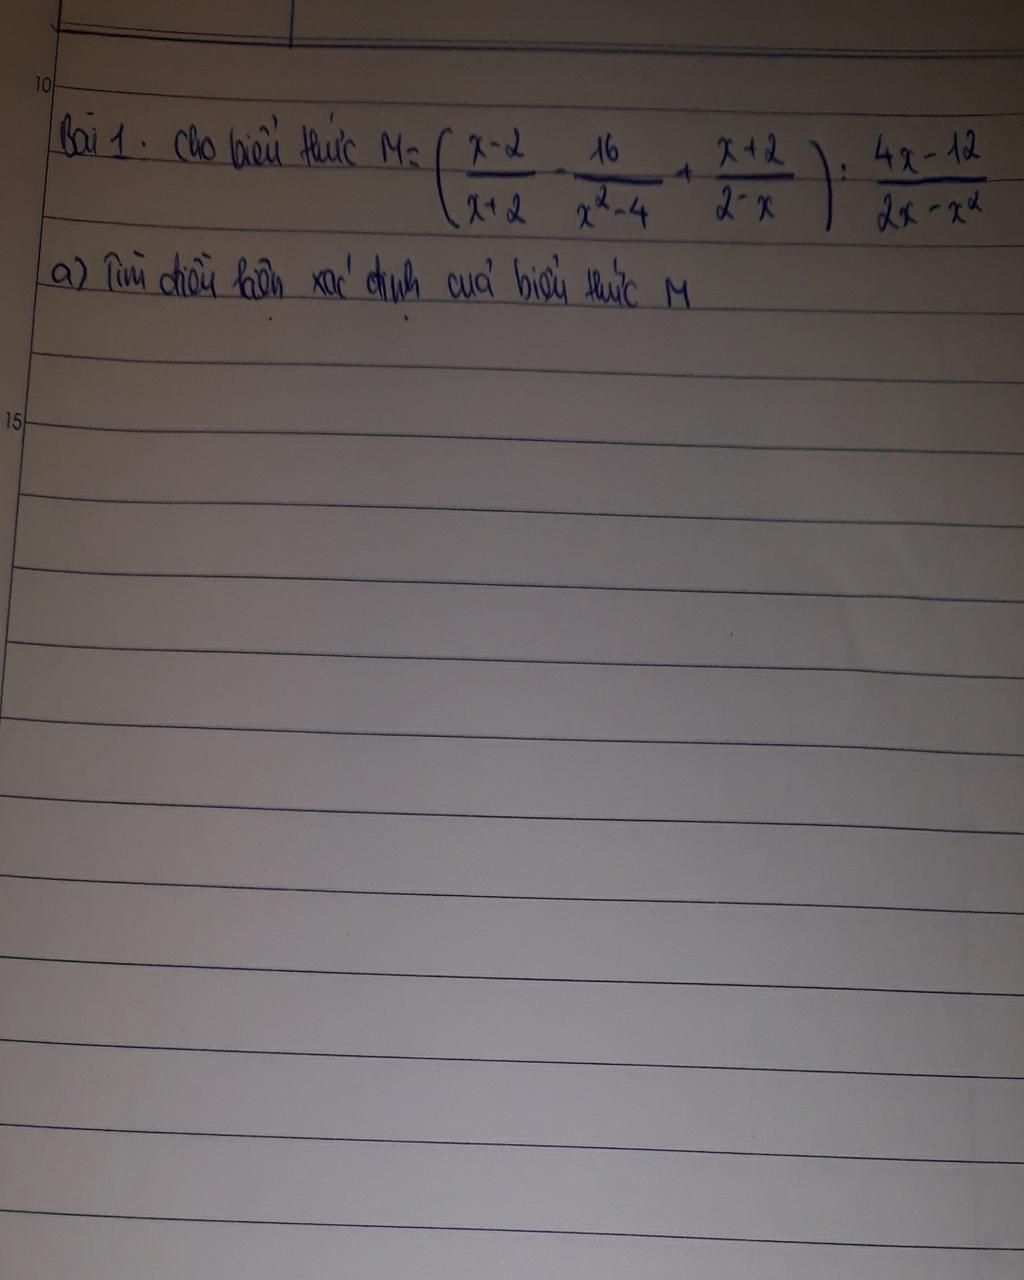 10
Bài 1. Cho biểu thức M= ( x-2/x+2 - 16/x²-4 + x+2/2-x ) : 4x-12/2x-x²
a) Tìm điều kiện xác định của biểu thức M
15